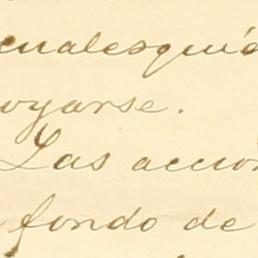 cualesquie
oyarse.
Las accio
fondo de